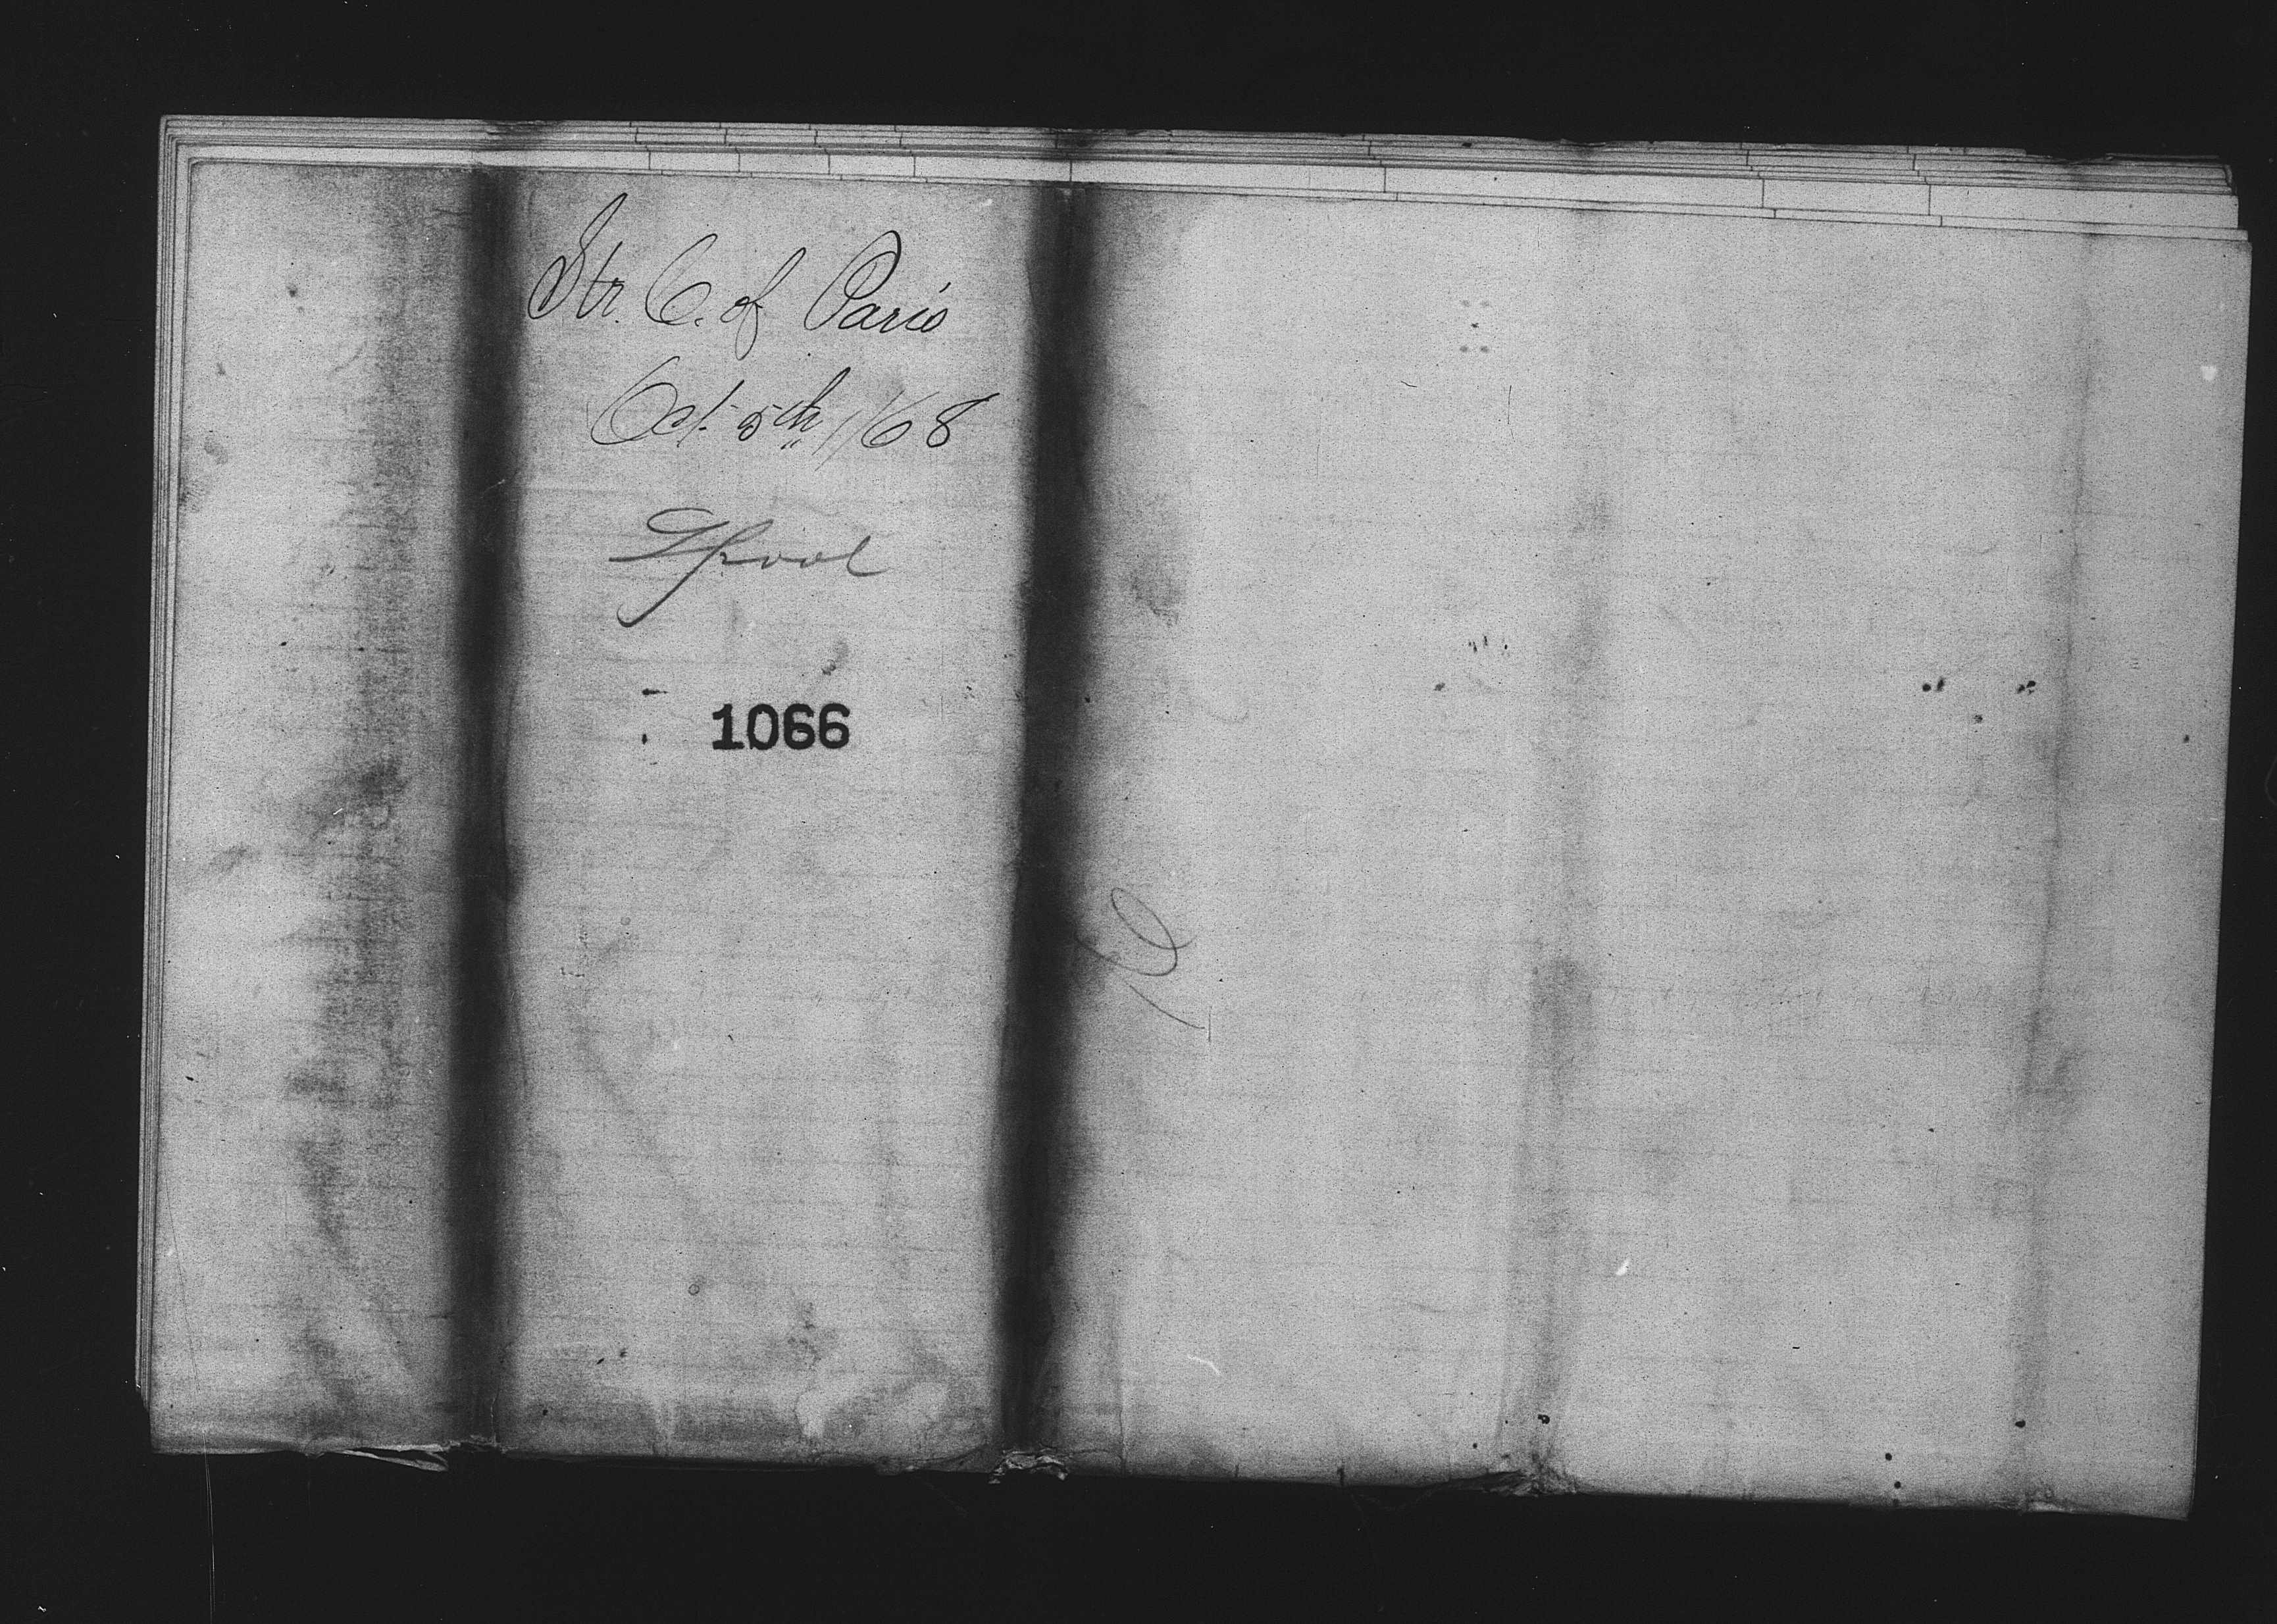 Str. C. of Paris
Oct. 5th / 68
Lpool
1066